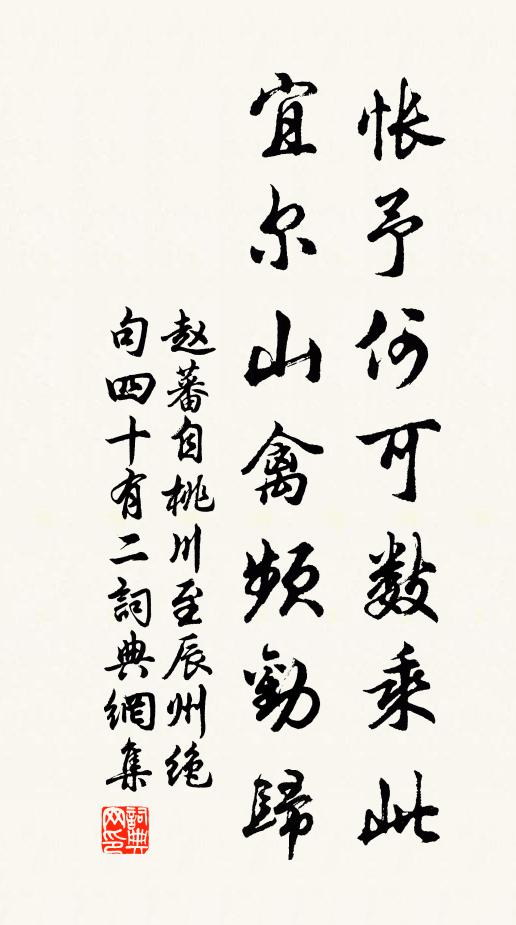 怅予何可数乘此
宜尔山禽频劝歸
赵蕃自桃川至辰州绝
句四十有二詞典網集
詞典网印